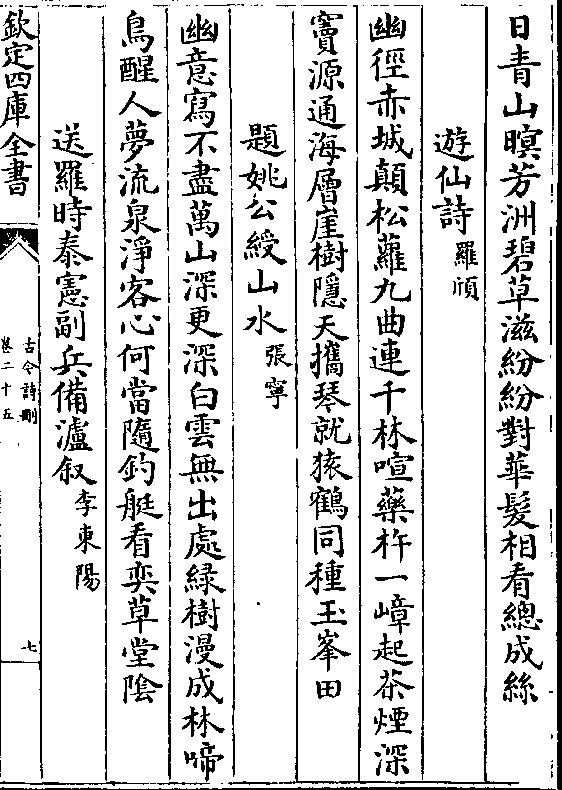 日青山暝芳洲碧草滋紛紛對華髮相看總成絲
遊仙詩羅頎
幽徑赤城顛松蘿九曲連千林喧藥杵一嶂起茶煙深
竇源通海層崖樹隱天攜琴就猿鶴同種玉峯田
題姚公綬山水張寧
幽意寫不盡萬山深更深白雲無出處緑樹漫成林啼
鳥醒人夢流泉淨客心何當隨釣艇看奕草堂陰
送羅時泰憲副兵備瀘叙李東陽
欽定四庫全書
古今詩刪
卷二十五
七